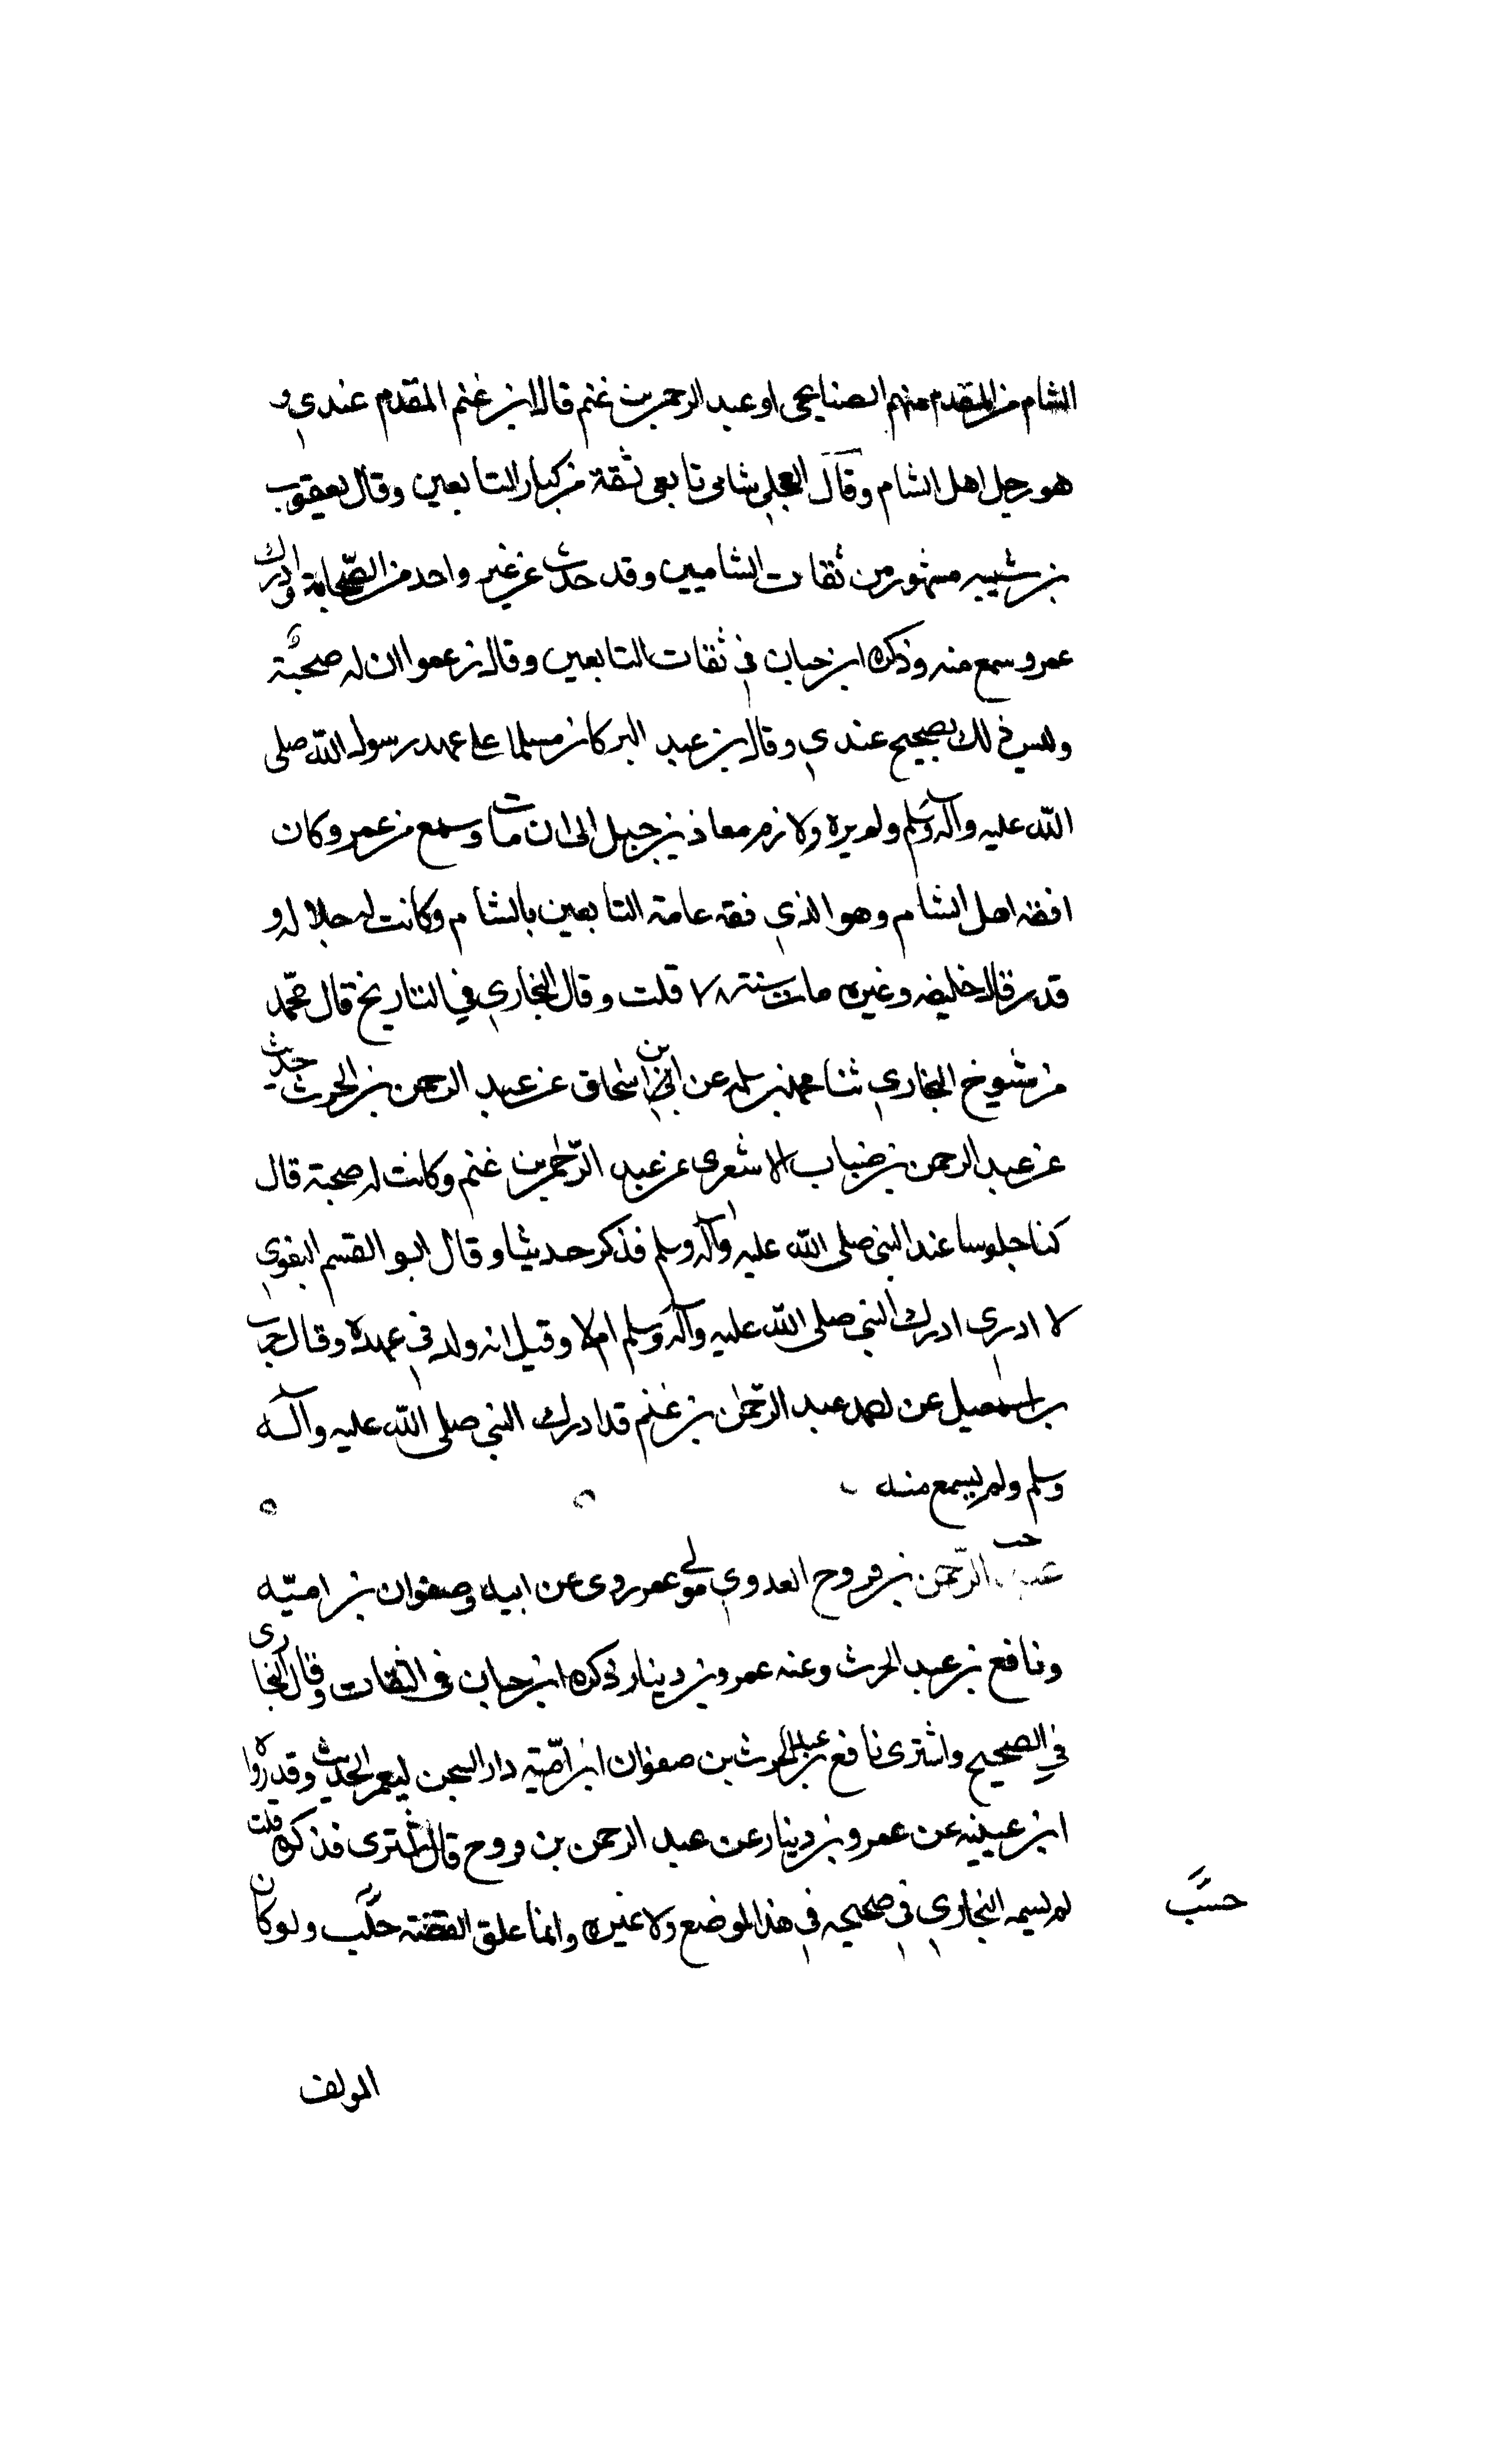 الشام من المقدم منهم الصنابحي او عبد الرحمن بن غنم قال ابن غنم المقدم عندي و
هو رجل اهل الشام وقال العجلي شامى تابعى ثقة من كبار التابعين وقال يعقوب
بن شيبه مشهور من ثقات الشاميين وقد حدث عن غير واحد من الصحابة وادرك
عمر وسمع منه وذكره ابن حبان في ثقات التابعين وقال زعموا ان له صحبة
وليس ذلك بصحيح عندي وقال بن عبد البر كان مسلما على عهد رسول الله صلى
الله عليه وآله وسلم ولم يره ولازم معاذ بن جبل الى ان مات وسمع من عمر وكان
افقه اهل الشام وهو الذي فقه عامة التابعين بالشام وكانت له جلاله و
قدر قال خليفه وغيره مات سنة ٧٨ قلت وقال البخاري في التاريخ قال محمد
من شيوخ البخاري ثنا محمد بن سلمه عن ابن اسحاق عن عبد الرحمن بن الحرث حدث
عن عبد الرحمن بن ضباب الاشعرى عن عبد الرحمن بن غنم وكانت له صحبة قال
كنا جلوسا عند النبى صلى الله عليه وآله وسلم فذكر حديثا وقال ابو القسم البغوي
لا ادرى ادرك النبي صلى الله عليه وآله وسلم ام لا وقيل انه ولد في عهده وقال حرب
بن اسمعيل عن احمد عبد الرحمن بن غنم قد ادرك النبي صلى الله عليه وآله
وسلم ولم يسمع منه
عبد الرحمن بن فروح العدوي مولى عمر روى عن ابيه وصفوان بن اميه
ونافع بن عبد الحرث وعنه عمرو بن دينار ذكره ابن حبان فى الثقات وقال البخارى
في الصحيح واشترى نافع بن عبد الحرث بن صفوان ابن امية دار السجن لعمر الحديث وقد رواه
ابن عيينه عن عمرو بن دينار عن عبد الرحمن بن فروح قال اشترى فذكره قلت
لم يسمه البخاري في صحيحه في هذا الموضع ولا غيره وانما علق القصة حسب ولو كان
حسب
المولف